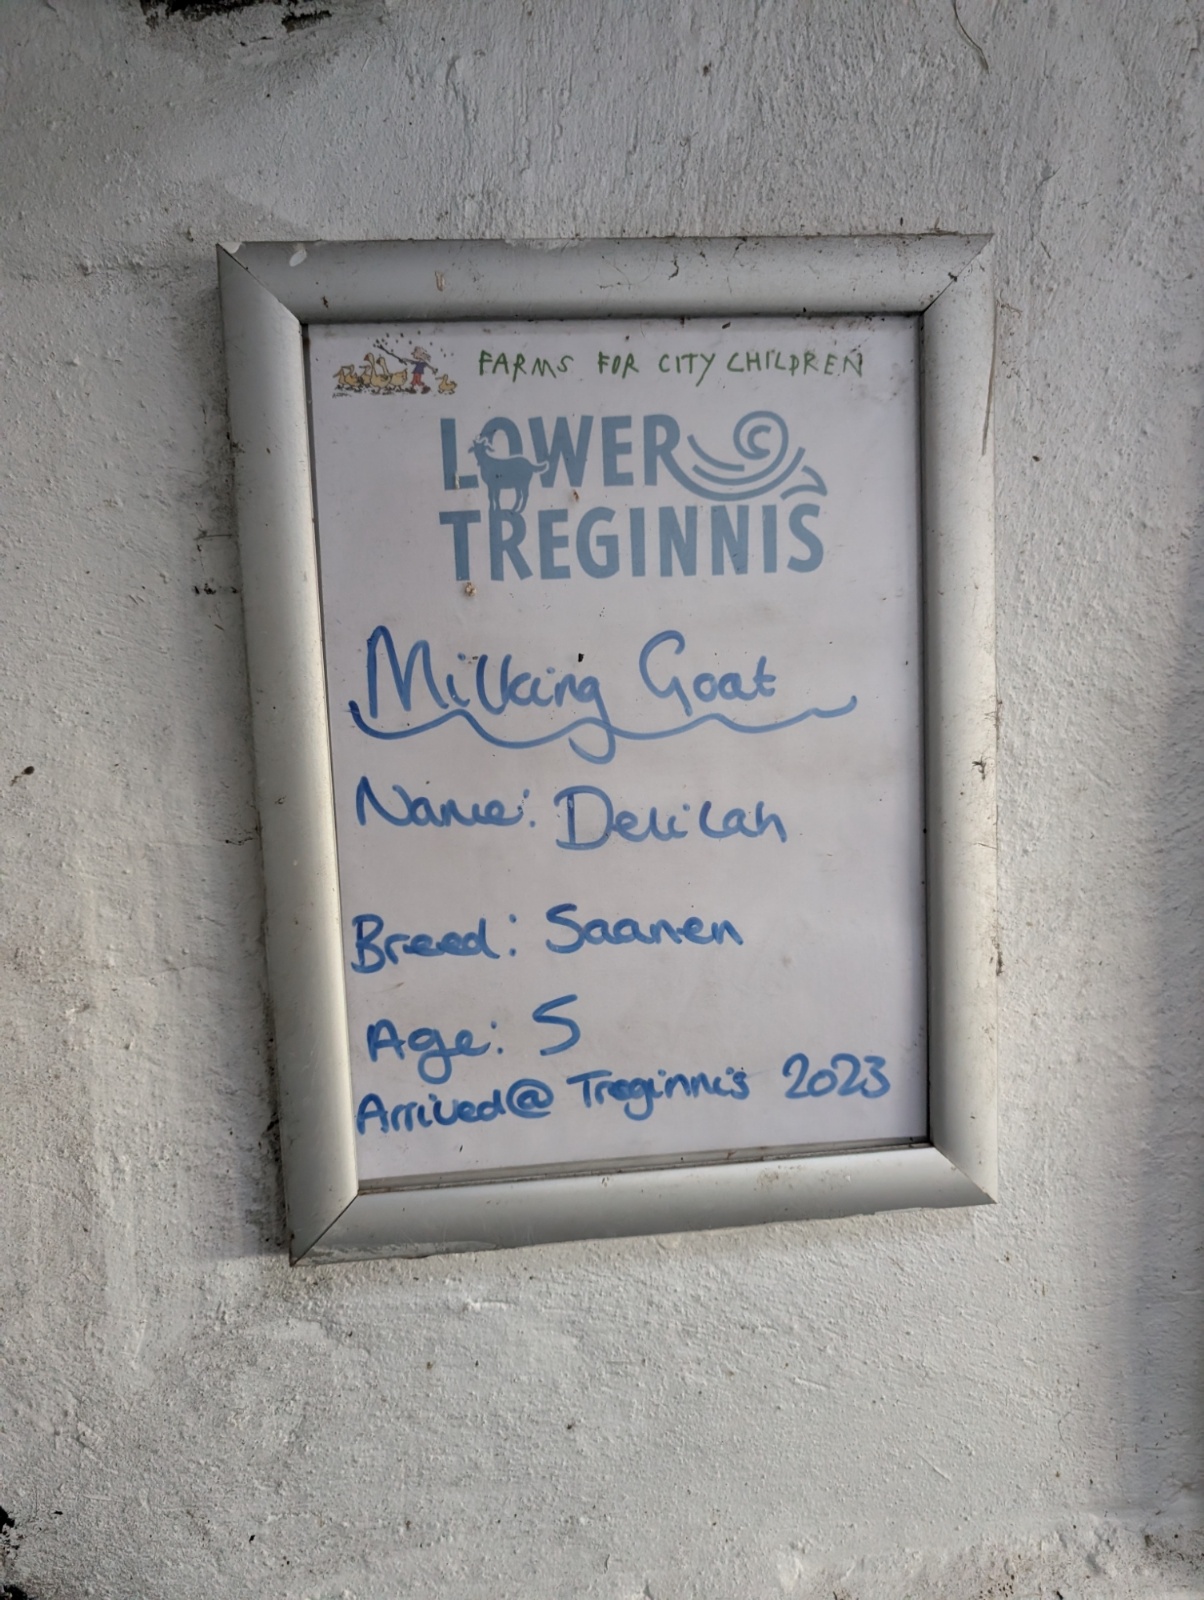 FARMS FOR CITY CHILDREN
LOWER
TREGINNIS
Milking Goat
Name: Delilah
Breed: Saanen
Age: 5
Arrived@ Treginnis 2023